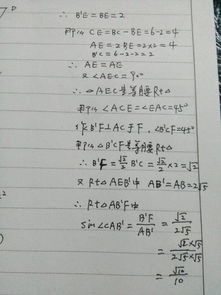 D
∴ B'E = BE = 2
所以 CE = BC - BE = 6-2 = 4
AE = 2BE = 2×2 = 4
B'C = 6-2-2 = 2
∴ AE = AE
又 ∠AEC = 90°
∴ △AEC 为等腰 Rt△
所以 ∠ACE = ∠EAC = 45°
作 B'F⊥AC 于 F, ∠B'CF = 45°
所以 △B'CF 是等腰 Rt△
∴ B'F = √2/2 B'C = √2/2 × 2 = √2
又 Rt△AEB' 中 AB' = AB = 2√5
∴ Rt△AB'F 中
sin∠CAB' = B'F/AB' = √2/2√5
= √2×√5/2√5×√5
= √10/10